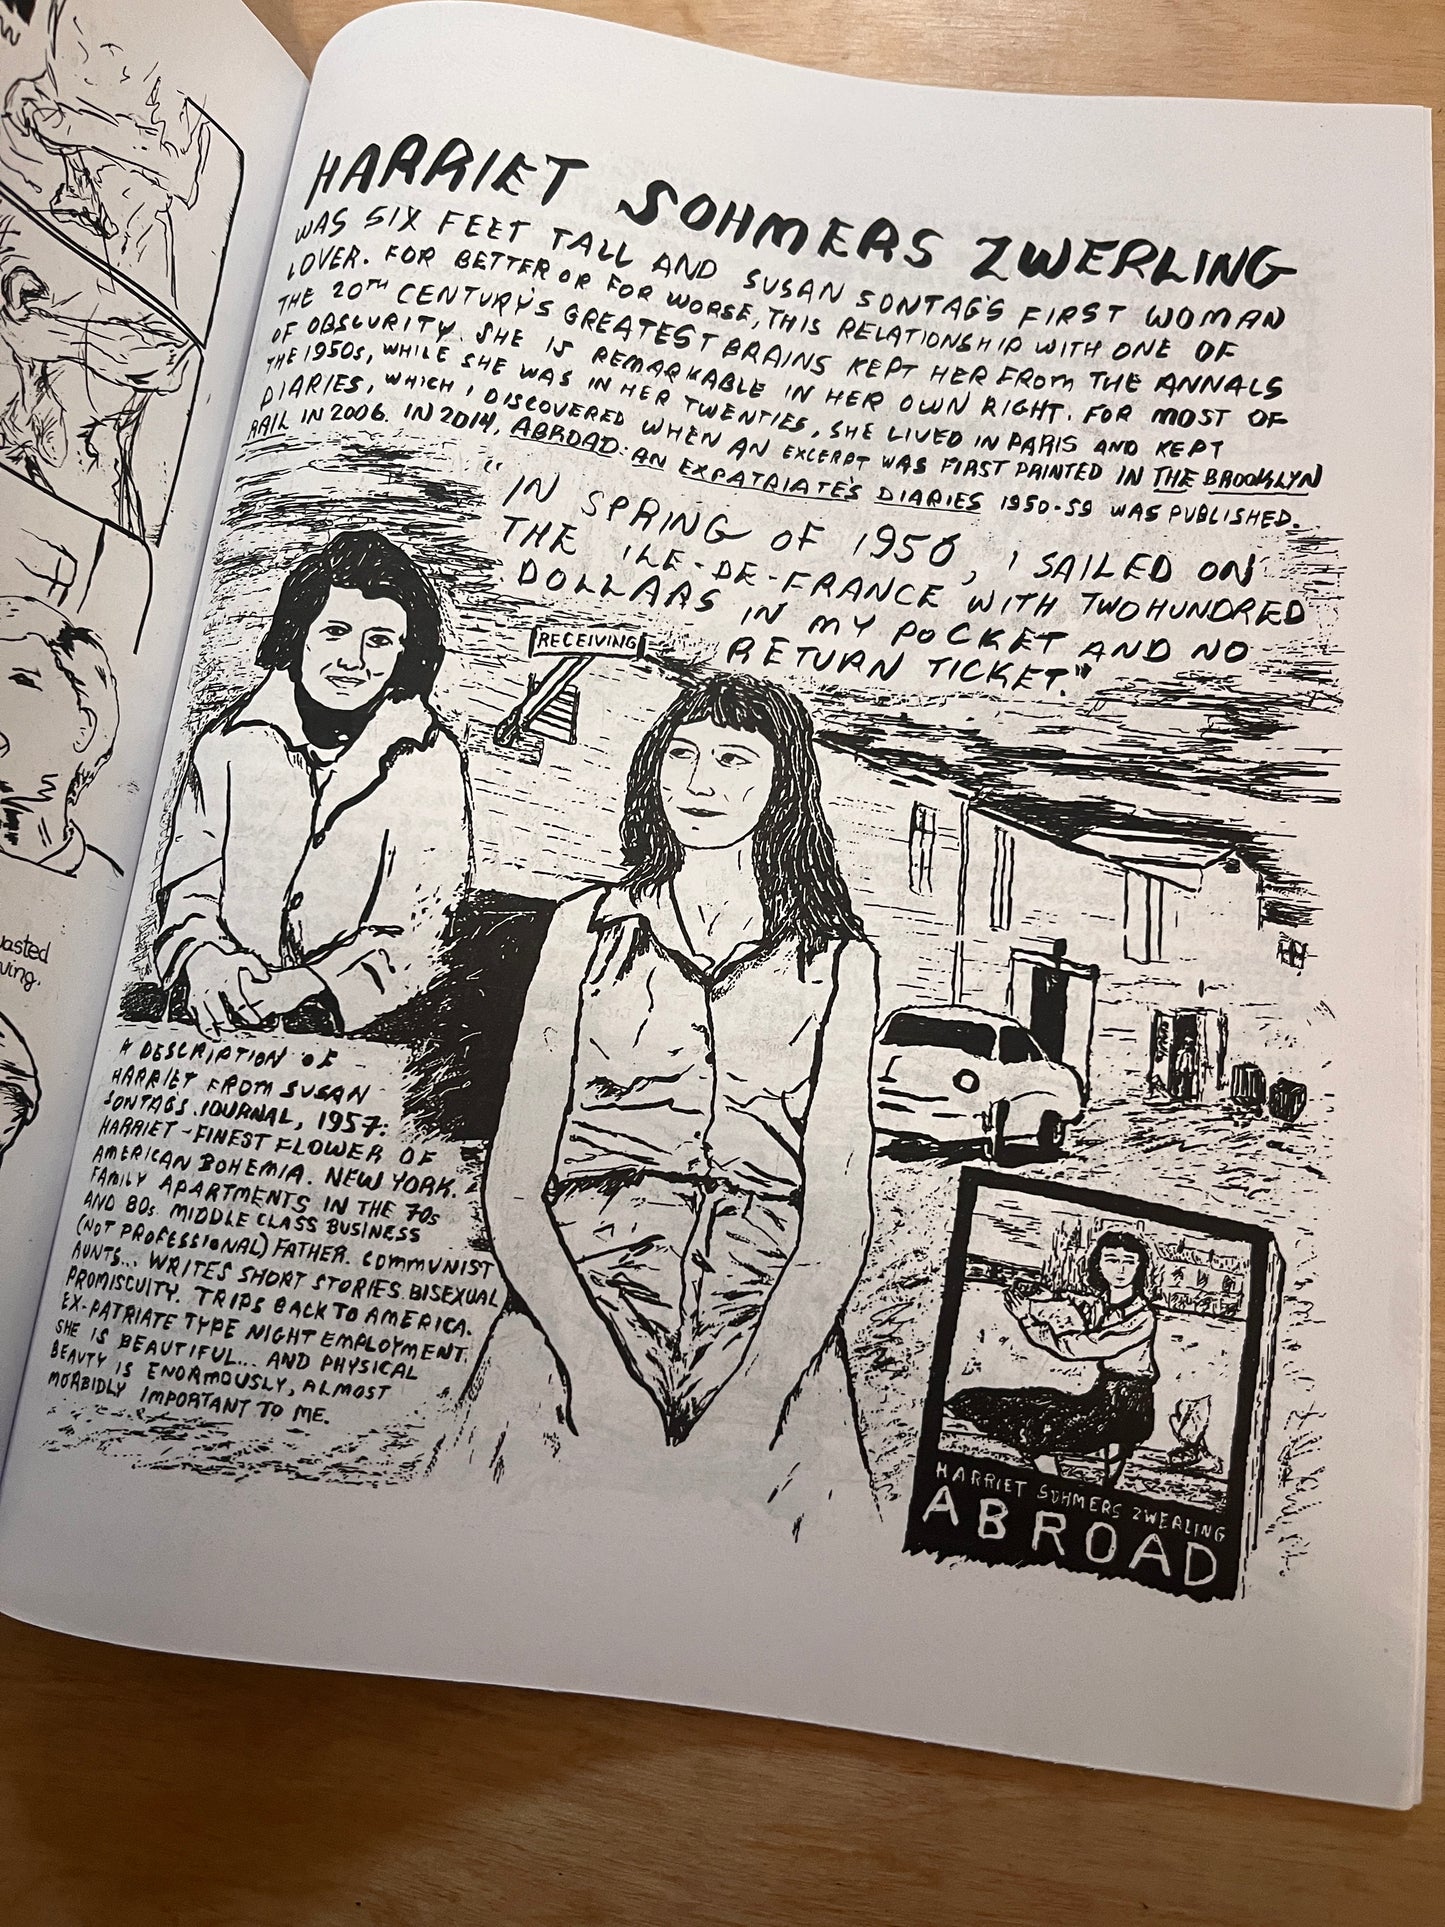 HARRIET SOHMERS ZWERLING
WAS SIX FEET TALL AND SUSAN SONTAG'S FIRST WOMAN
LOVER. FOR BETTER OR FOR WORSE, THIS RELATIONSHIP WITH ONE OF
THE 20TH CENTURY'S GREATEST BRAINS KEPT HER FROM THE ANNALS
OF OBSCURITY. SHE IS REMARKABLE IN HER OWN RIGHT. FOR MOST OF
THE 1950s, WHILE SHE WAS IN HER TWENTIES, SHE LIVED IN PARIS AND KEPT
DIARIES, WHICH I DISCOVERED WHEN AN EXCERPT WAS FIRST PRINTED IN THE BROOKLYN
RAIL IN 2006. IN 2014, ABROAD: AN EXPATRIATE'S DIARIES 1950-59 WAS PUBLISHED.
"IN SPRING OF 1950, I SAILED ON
THE ILE-DE-FRANCE WITH TWO HUNDRED
DOLLARS IN MY POCKET AND NO
RETURN TICKET."
RECEIVING
A DESCRIPTION OF
HARRIET FROM SUSAN
SONTAG'S JOURNAL, 1957:
HARRIET - FINEST FLOWER OF
AMERICAN BOHEMIA. NEW YORK.
FAMILY APARTMENTS IN THE 70s
AND 80s. MIDDLE CLASS BUSINESS
(NOT PROFESSIONAL) FATHER. COMMUNIST
AUNTS... WRITES SHORT STORIES. BISEXUAL
PROMISCUITY. TRIPS BACK TO AMERICA.
EX-PATRIATE TYPE NIGHT EMPLOYMENT.
SHE IS BEAUTIFUL... AND PHYSICAL
BEAUTY IS ENORMOUSLY, ALMOST
MORBIDLY IMPORTANT TO ME.
HARRIET SOHMERS ZWERLING
ABROAD